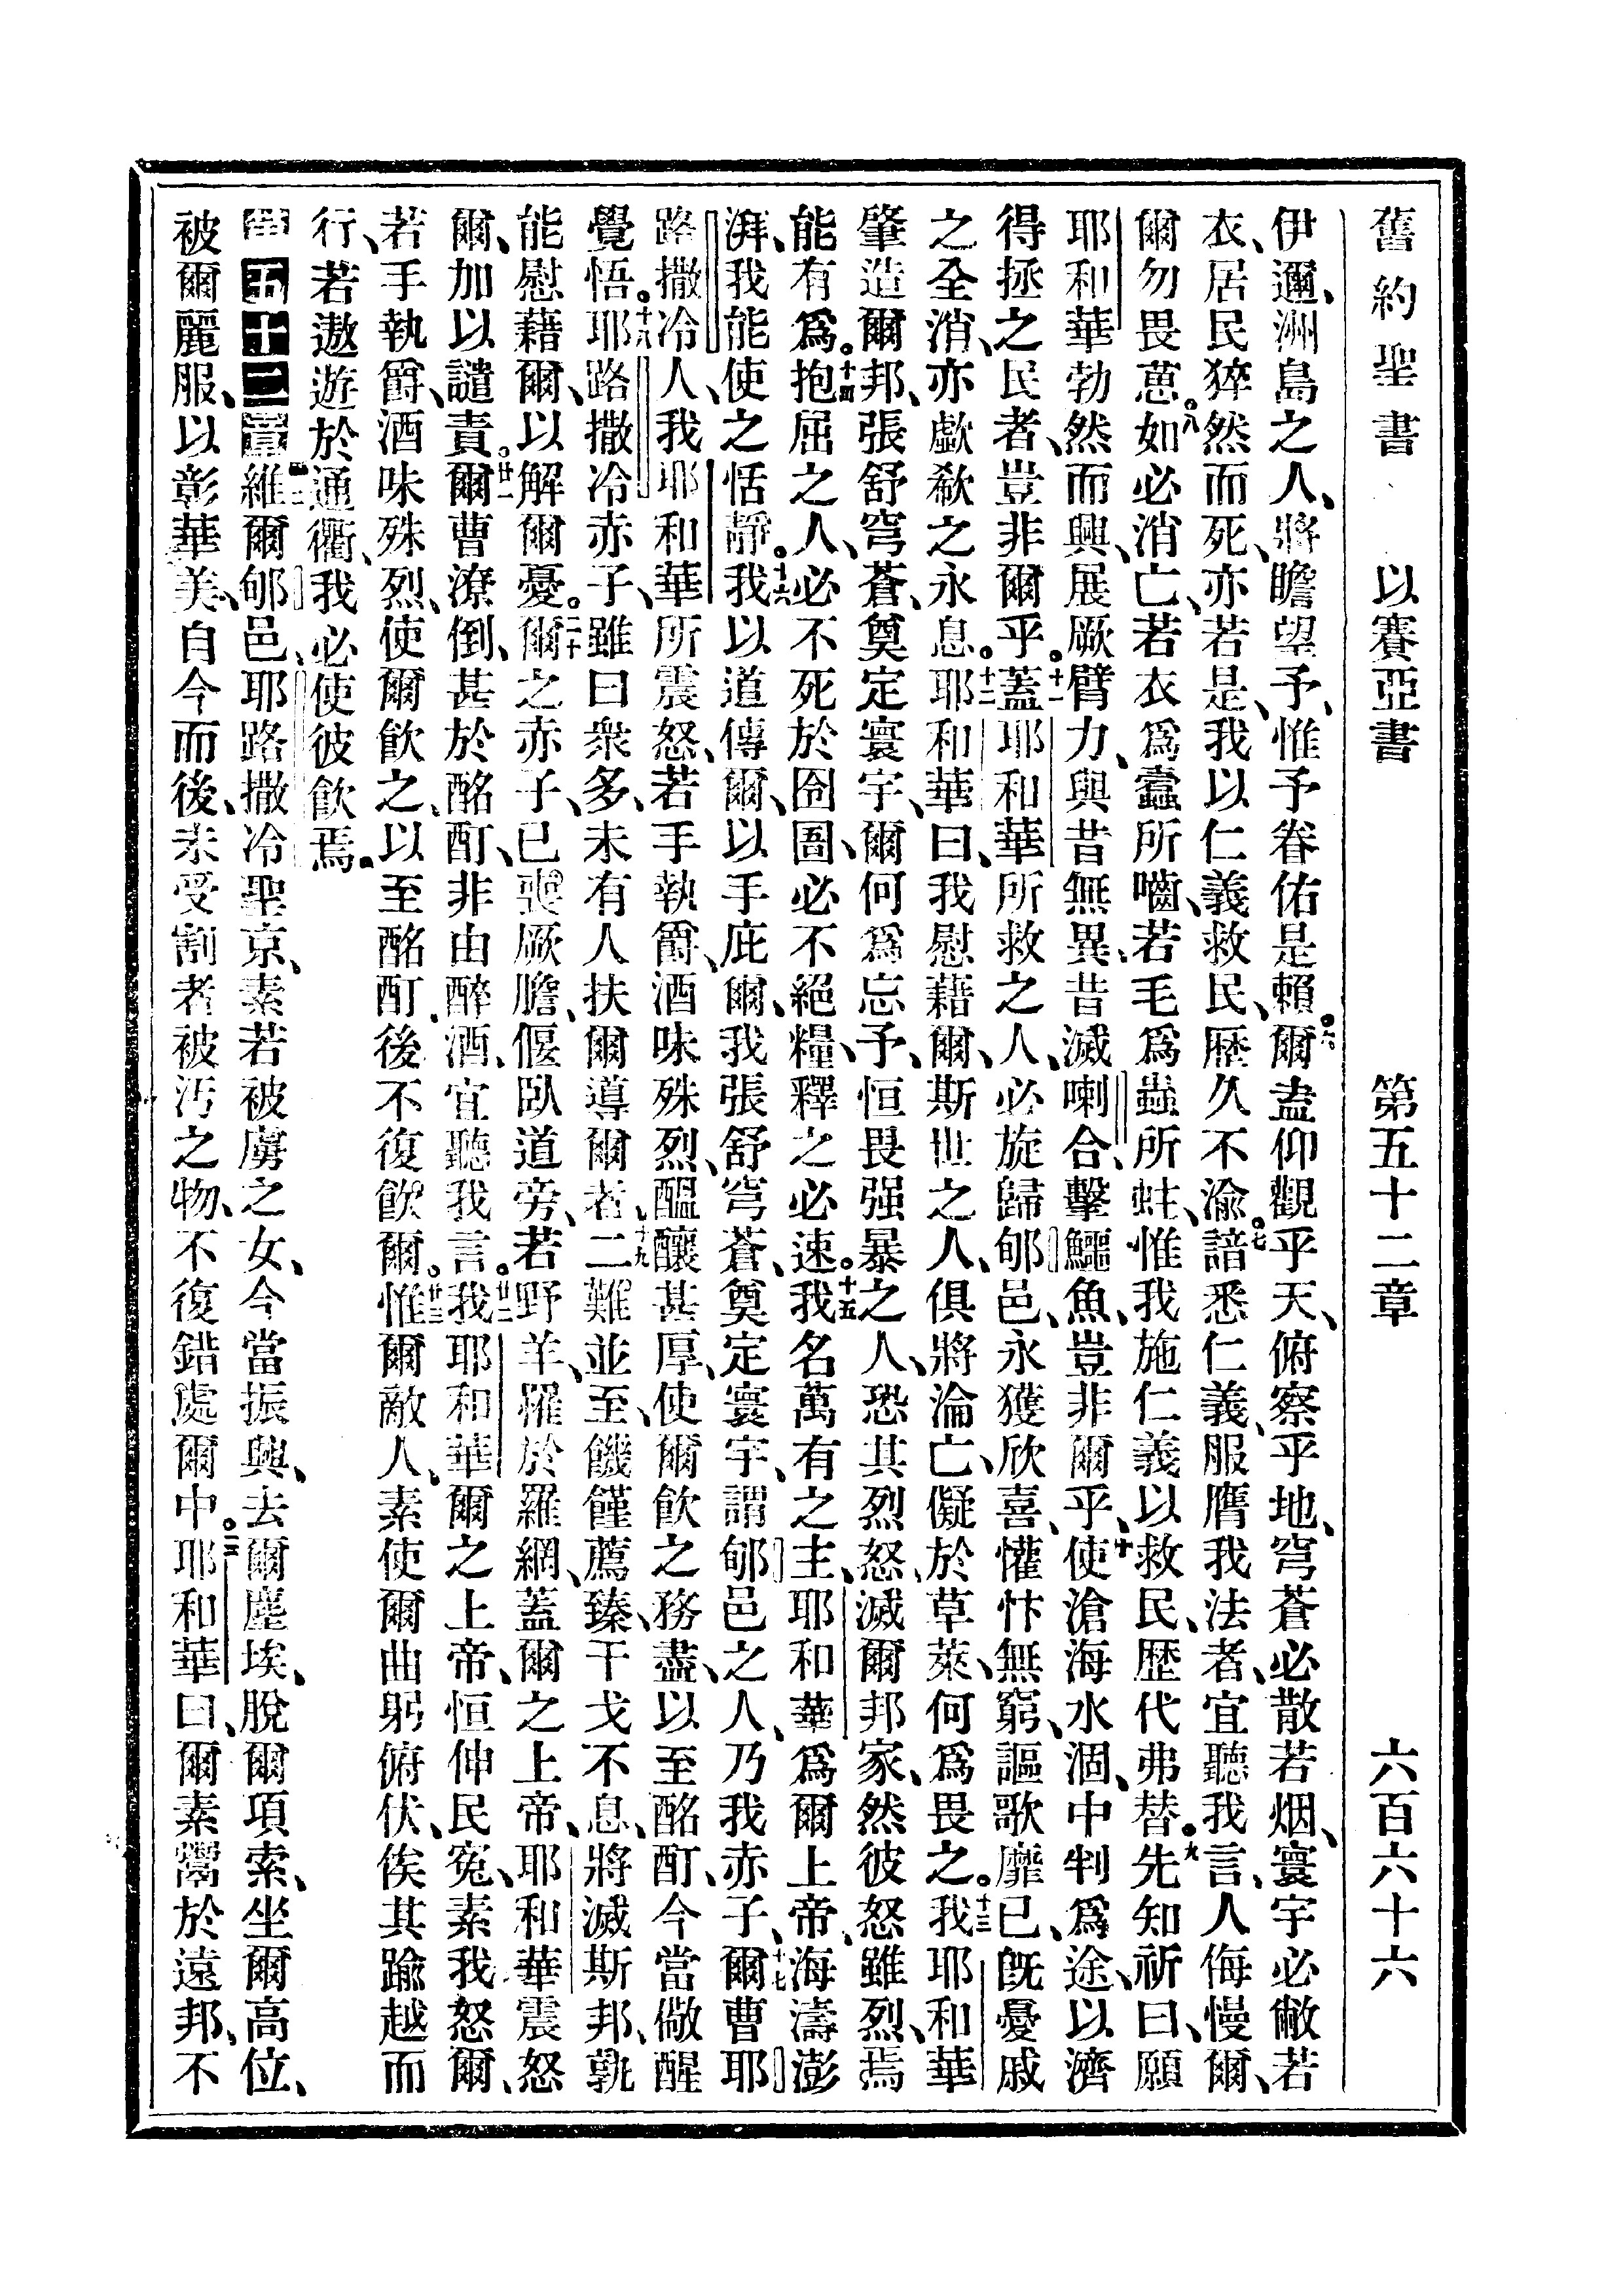 舊約聖書 以賽亞書 第五十二章 六百六十六
伊邇、洲島之人、將瞻望予、惟予眷佑是賴。六爾盍仰觀乎天、俯察乎地、穹蒼必散若烟、寰宇必敝若
衣、居民猝然而死、亦若是、我以仁義救民、歷久不渝。七諳悉仁義、服膺我法者、宜聽我言、人侮慢爾、
爾勿畏葸。八如必消亡、若衣爲蠹所嚙、若毛爲蟲所蛀、惟我施仁義以救民、歷代弗替。九先知祈曰、願
耶和華勃然而興、展厥臂力、與昔無異、昔滅喇合、擊鱷魚、豈非爾乎、十使滄海水涸、中判爲途、以濟
得拯之民者、豈非爾乎。十一蓋耶和華所救之人、必旋歸郇邑、永獲欣喜、懽忭無窮、謳歌靡已、旣憂戚
之全消、亦歔欷之永息。十二耶和華曰、我慰藉爾、斯世之人、俱將淪亡、儗於草萊、何爲畏之。十三我耶和華
肇造爾邦、張舒穹蒼、奠定寰宇、爾何爲忘予、恒畏强暴之人、恐其烈怒、滅爾邦家、然彼怒雖烈、焉
能有爲。十四抱屈之人、必不死於囹圄、必不絕糧、釋之必速。十五我名萬有之主、耶和華爲爾上帝、海濤澎
湃、我能使之恬靜。十六我以道傳爾、以手庇爾、我張舒穹蒼、奠定寰宇、謂郇邑之人、乃我赤子、十七爾曹耶
路撒冷人、我耶和華所震怒、若手執爵、酒味殊烈、醞釀甚厚、使爾飲之務盡、以至酩酊、今當儆醒
覺悟。十八耶路撒冷赤子、雖曰衆多、未有人扶爾導爾者、十九二難並至、饑饉薦臻、干戈不息、將滅斯邦、孰
能慰藉爾、以解爾憂。二十爾之赤子、已喪厥膽、偃臥道旁、若野羊、罹於羅網、蓋爾之上帝、耶和華震怒
爾、加以譴責。廿一爾曹潦倒、甚於酩酊、非由醉酒、宜聽我言。廿二我耶和華爾之上帝、恒伸民寃、素我怒爾、
若手執爵、酒味殊烈、使爾飲之、以至酩酊、後不復飲爾。廿三惟爾敵人、素使爾曲躬俯伏、俟其踰越而
行、若遨遊於通衢、我必使彼飲焉。
第五十二章一維爾郇邑、耶路撒冷聖京、素若被虜之女、今當振興、去爾塵埃、脫爾項索、坐爾高位、
被爾麗服、以彰華美、自今而後、未受割者被汚之物、不復錯處爾中。三耶和華曰、爾素鬻於遠邦、不